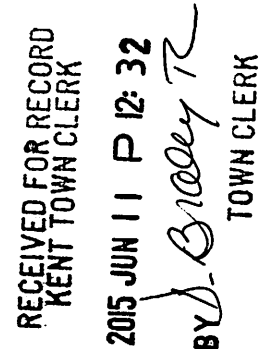 RECEIVED FOR RECORD
KENT TOWN CLERK
2015 JUN 11 P 12: 32
BY
TOWN CLERK